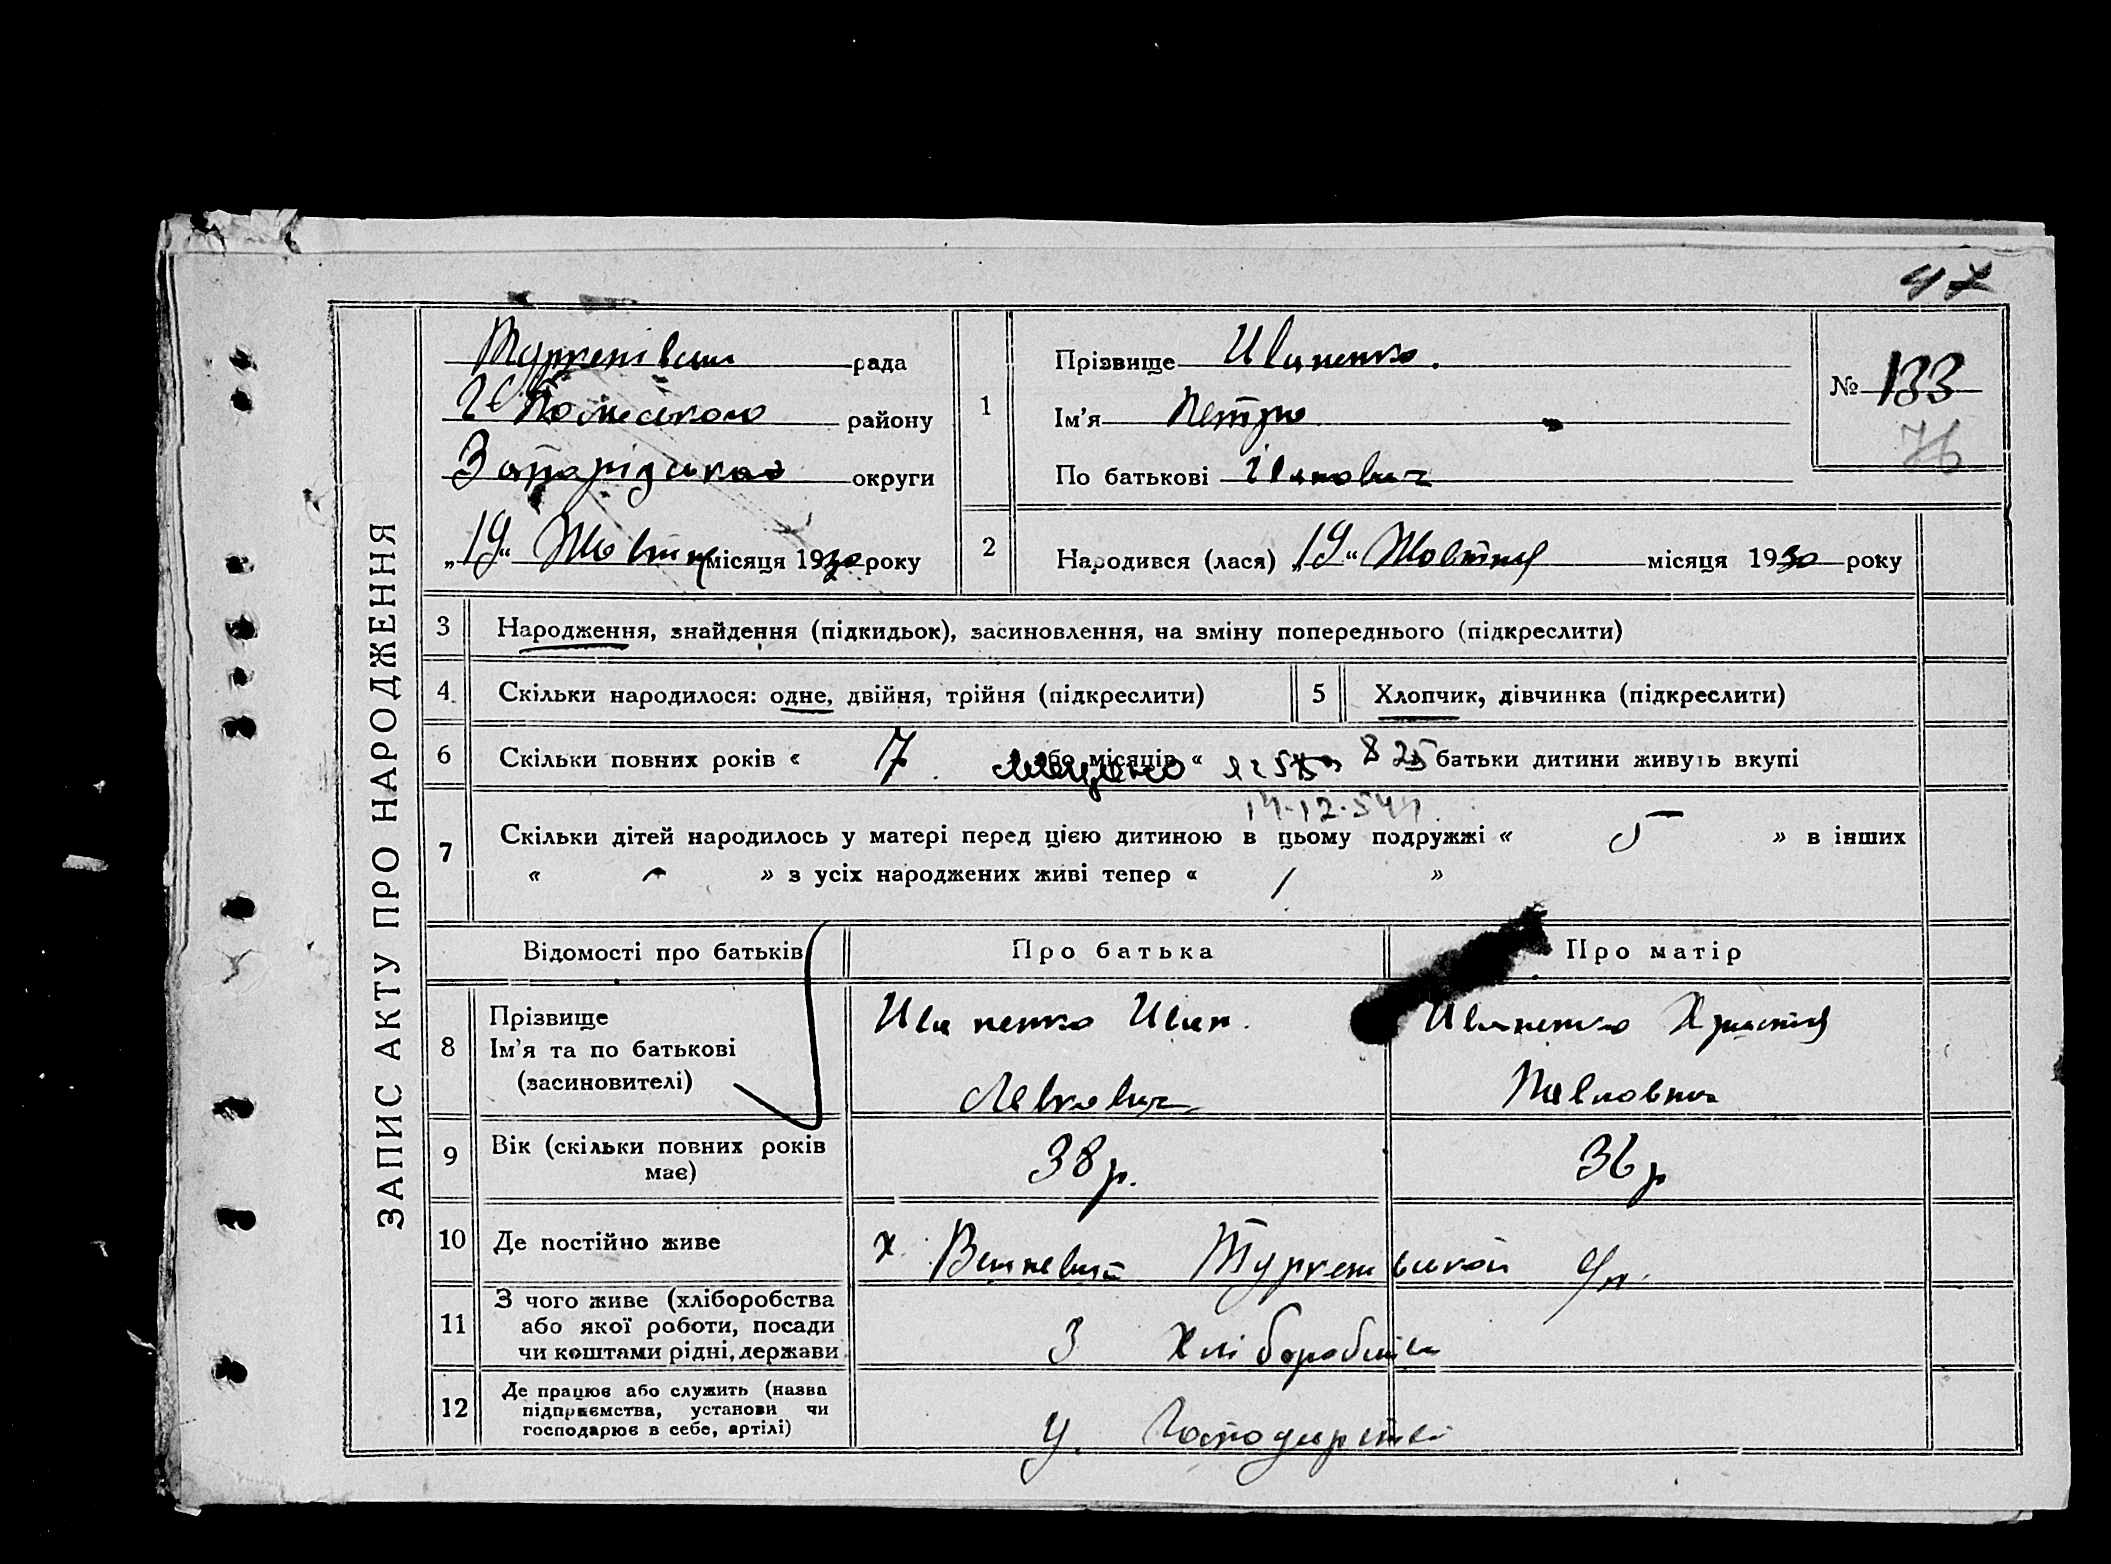 47
ЗАПИС АКТУ ПРО НАРОДЖЕННЯ
Тургенівська рада
району
Запорізької округи
„19“ Жовтня місяця 1930 року
1
Прізвище Иваненко.
Ім’я Петро
По батькові Іванович
№ 133
76
2
Народився (лася) „19“ Жовтня місяця 1930 року
3 Народження, знайдення (підкидьок), засиновлення, на зміну попереднього (підкреслити)
4 Скільки народилося: одне, двійня, трійня (підкреслити)
5 Хлопчик, дівчинка (підкреслити)
6 Скільки повних років « 7 або місяців « батьки дитини живуть вкупі
14.12.54
7 Скільки дітей народилось у матері перед цією дитиною в цьому подружжі « 5 » в інших
« - » з усіх народжених живі тепер « / »
Відомості про батьків Про батька Про матір
8 Прізвище
Ім’я та по батькові
(засиновителі)
Иваненко Иван.
Левкович
Иваненко Христя
Павловна
9 Вік (скільки повних років має)
38 р.
36 р
10 Де постійно живе
х. Вишневий Тургеневской с/р.
11 З чого живе (хліборобства
або якої роботи, посади
чи коштами рідні, держави
З Хліборобства
12 Де працює або служить (назва
підприємства, установи чи
господарює в себе, артілі)
У. Господарстві